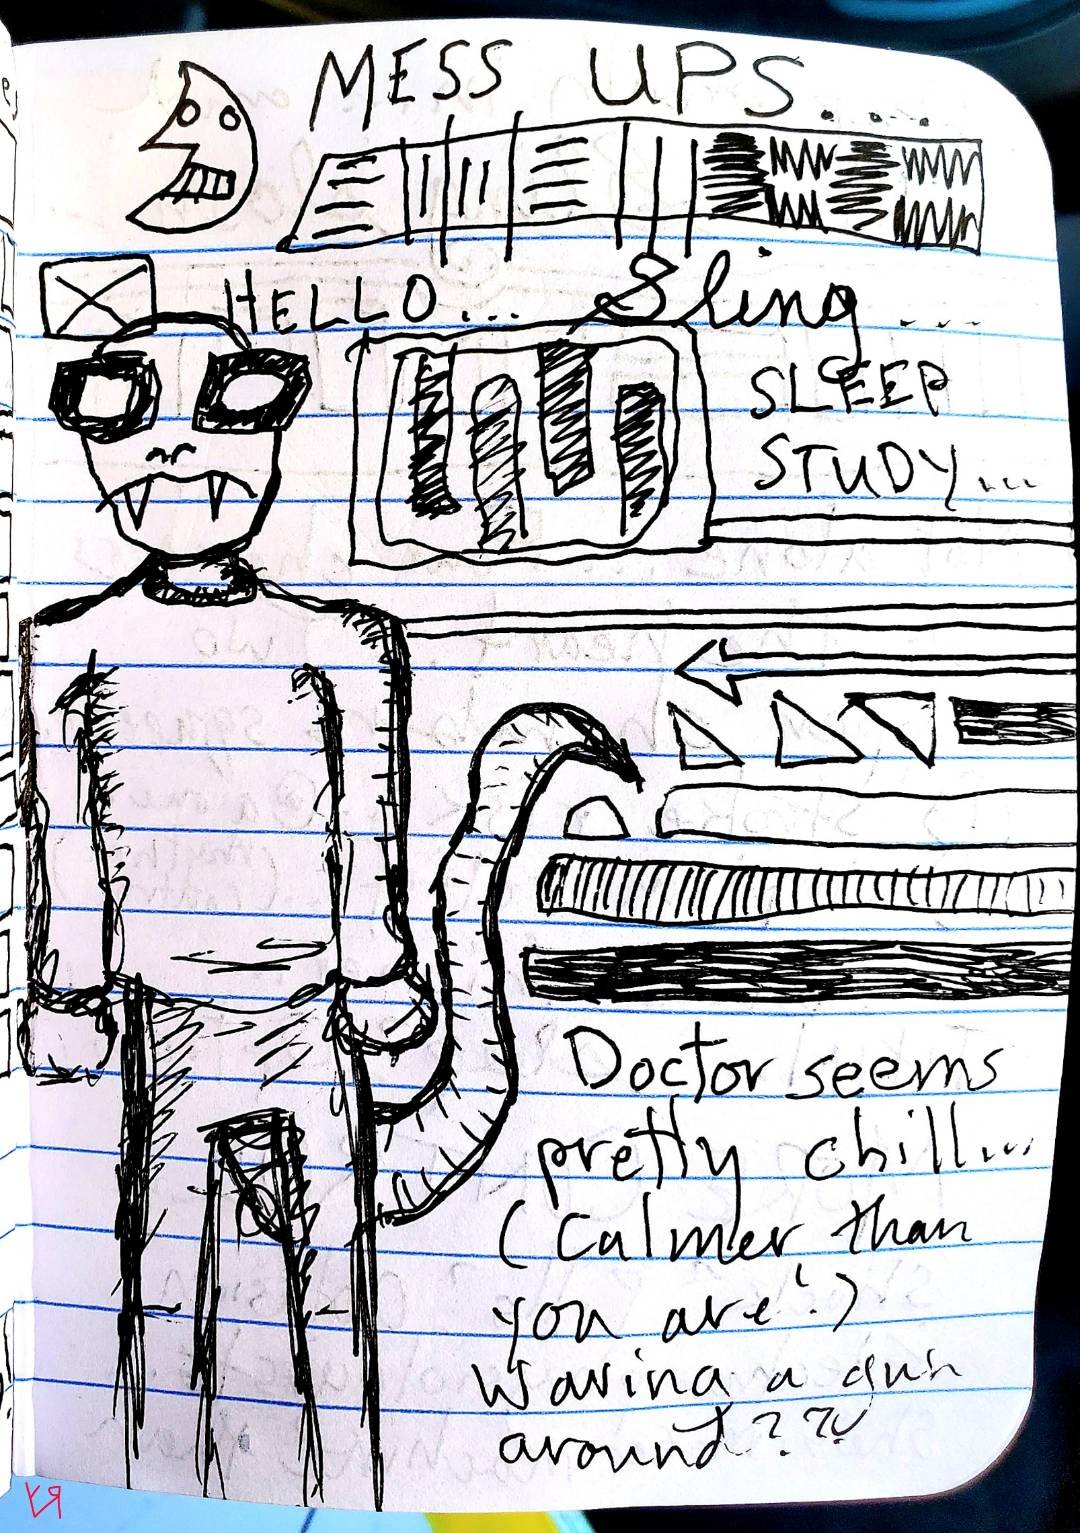 MESS UPS....
HELLO...
Sling...
SLEEP
STUDY...
Doctor seems
pretty chill...
(Calmer than
you are!)
Waving a gun
around???